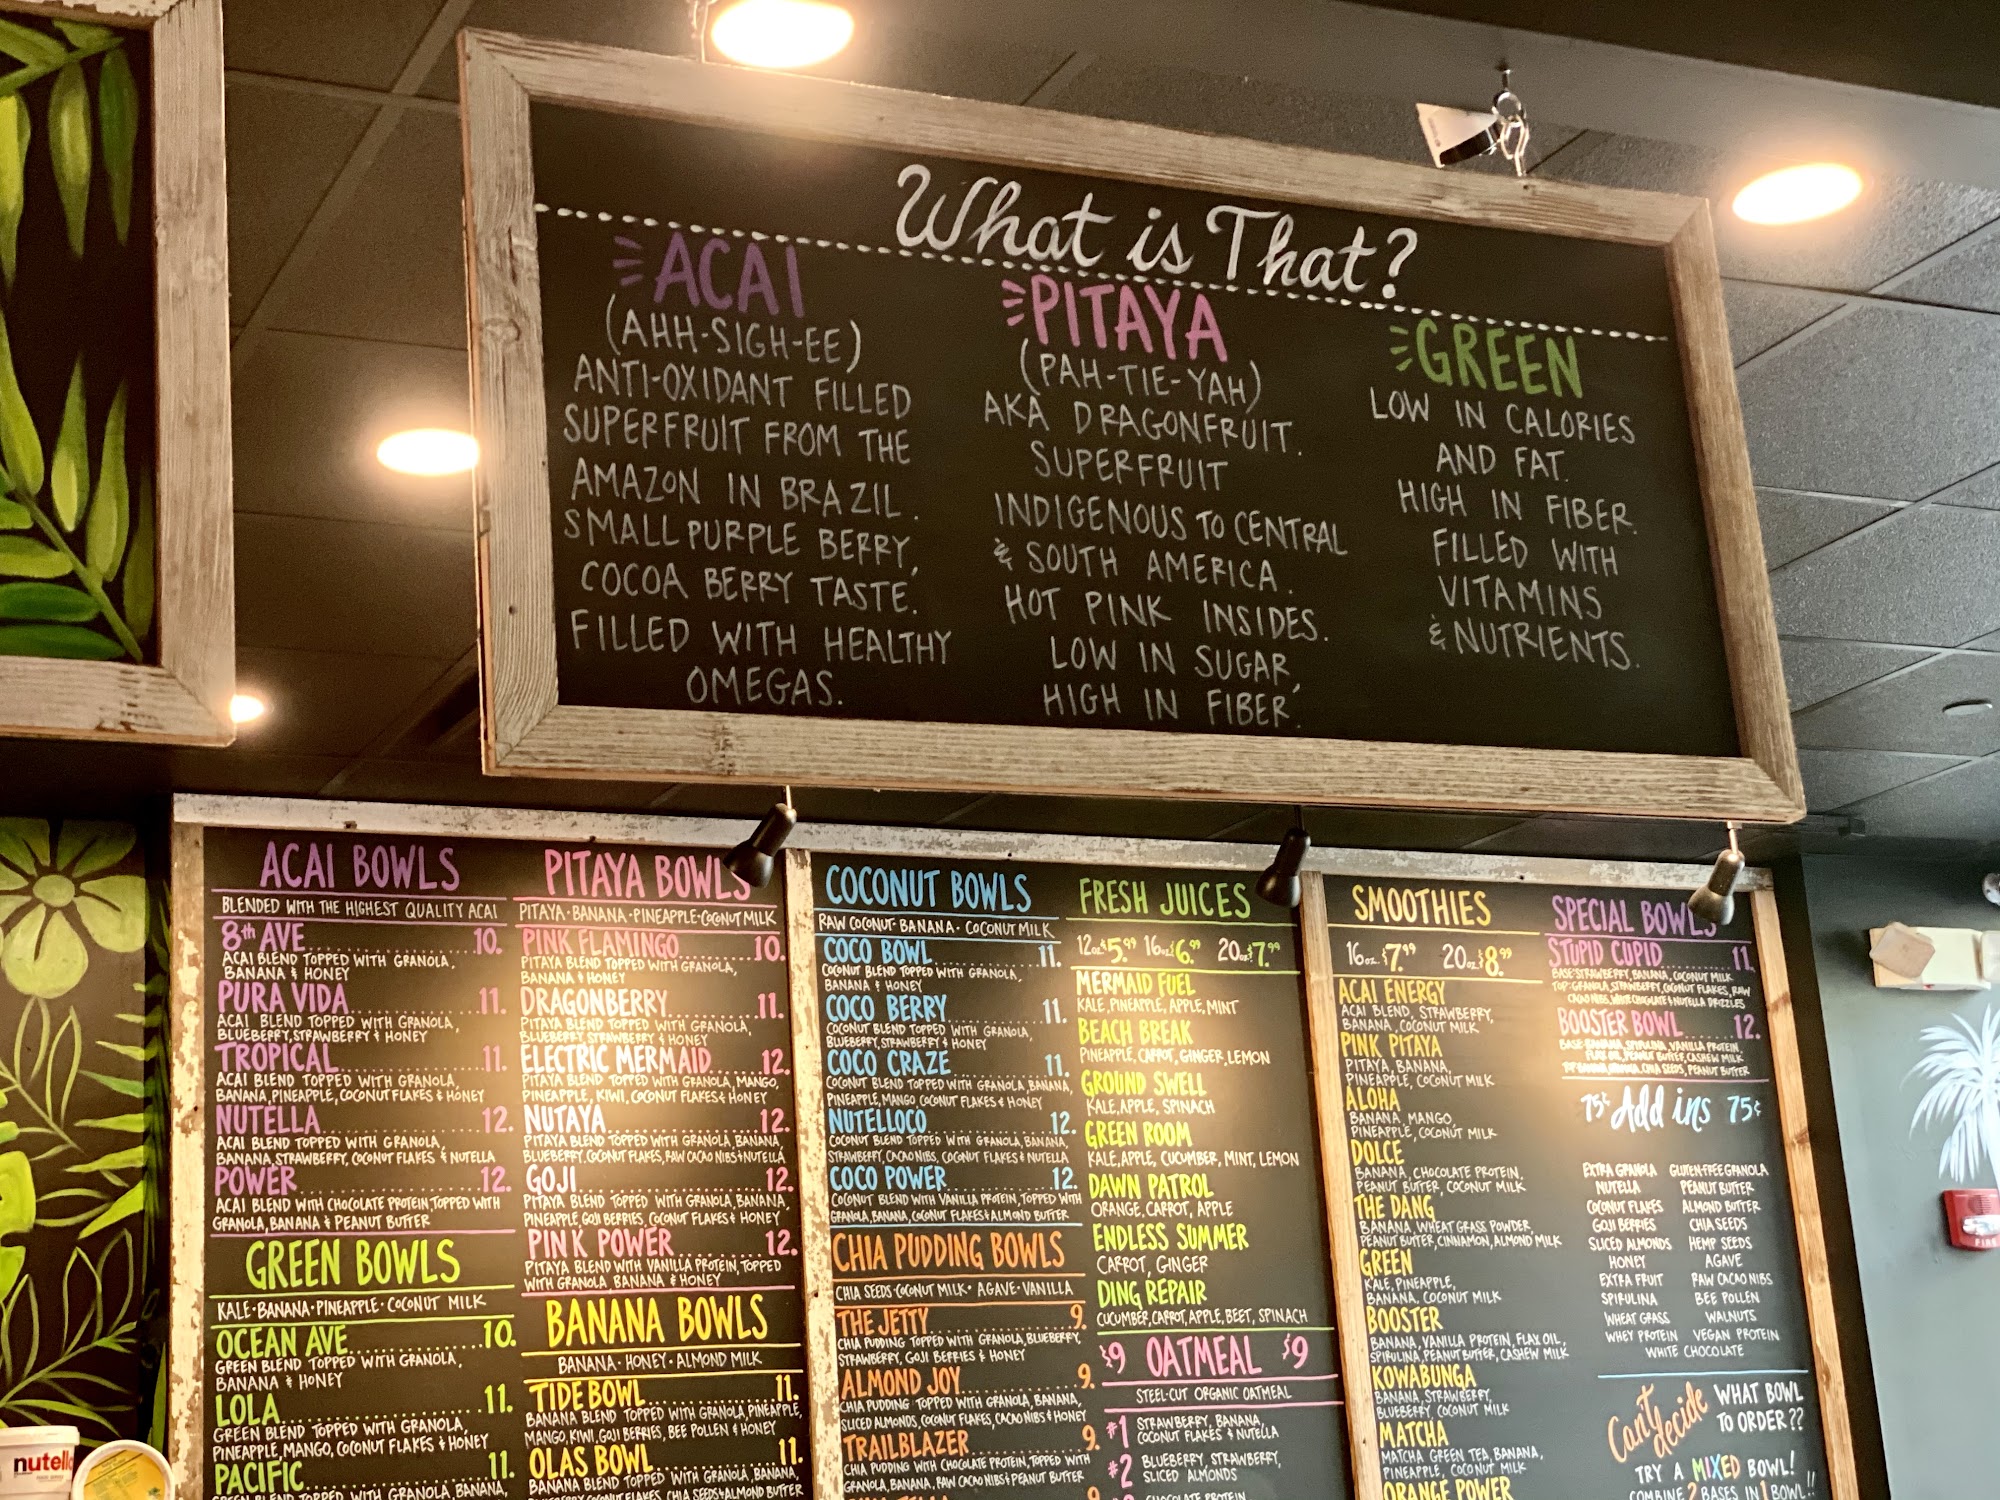 What is That?
ACAI
(AHH-SIGH-EE)
ANTI-OXIDANT FILLED
SUPERFRUIT FROM THE
AMAZON IN BRAZIL.
SMALL PURPLE BERRY,
COCOA BERRY TASTE.
FILLED WITH HEALTHY
OMEGAS.
PITAYA
(PAH-TIE-YAH)
AKA DRAGONFRUIT.
SUPERFRUIT
INDIGENOUS TO CENTRAL
& SOUTH AMERICA.
HOT PINK INSIDES.
LOW IN SUGAR,
HIGH IN FIBER.
GREEN
LOW IN CALORIES
AND FAT.
HIGH IN FIBER.
FILLED WITH
VITAMINS
& NUTRIENTS.
ACAI BOWLS
BLENDED WITH THE HIGHEST QUALITY ACAI
8th AVE 10.
ACAI BLEND TOPPED WITH GRANOLA,
BANANA & HONEY
PURA VIDA 11.
ACAI BLEND TOPPED WITH GRANOLA,
BLUEBERRY, STRAWBERRY & HONEY
TROPICAL 11.
ACAI BLEND TOPPED WITH GRANOLA,
BANANA, PINEAPPLE, COCONUT FLAKES & HONEY
NUTELLA 12.
ACAI BLEND TOPPED WITH GRANOLA,
BANANA, STRAWBERRY, COCONUT FLAKES & NUTELLA
POWER 12.
ACAI BLEND WITH CHOCOLATE PROTEIN, TOPPED WITH
GRANOLA, BANANA & PEANUT BUTTER
GREEN BOWLS
KALE · BANANA · PINEAPPLE · COCONUT MILK
OCEAN AVE 10.
GREEN BLEND TOPPED WITH GRANOLA,
BANANA & HONEY
LOLA 11.
GREEN BLEND TOPPED WITH GRANOLA,
PINEAPPLE, MANGO, COCONUT FLAKES & HONEY
PACIFIC 11.
GREEN BLEND TOPPED WITH GRANOLA, BANANA,
PITAYA BOWLS
PITAYA · BANANA · PINEAPPLE · COCONUT MILK
PINK FLAMINGO 10.
PITAYA BLEND TOPPED WITH GRANOLA,
BANANA & HONEY
DRAGONBERRY 11.
PITAYA BLEND TOPPED WITH GRANOLA,
BLUEBERRY, STRAWBERRY & HONEY
ELECTRIC MERMAID 12.
PITAYA BLEND TOPPED WITH GRANOLA, MANGO,
PINEAPPLE, KIWI, COCONUT FLAKES & HONEY
NUTAYA 12.
PITAYA BLEND TOPPED WITH GRANOLA, BANANA,
BLUEBERRY, COCONUT FLAKES, RAW CACAO NIBS & NUTELLA
GOJI 12.
PITAYA BLEND TOPPED WITH GRANOLA, BANANA,
PINEAPPLE, GOJI BERRIES, COCONUT FLAKES & HONEY
PINK POWER 12.
PITAYA BLEND WITH VANILLA PROTEIN, TOPPED
WITH GRANOLA, BANANA & HONEY
BANANA BOWLS
BANANA · HONEY · ALMOND MILK
TIDE BOWL 11.
BANANA BLEND TOPPED WITH GRANOLA, PINEAPPLE,
MANGO, KIWI, GOJI BERRIES, BEE POLLEN & HONEY
OLAS BOWL 11.
BANANA BLEND TOPPED WITH GRANOLA, BANANA,
BLUEBERRY, COCONUT FLAKES, CHIA SEEDS & ALMOND BUTTER
COCONUT BOWLS
RAW COCONUT · BANANA · COCONUT MILK
COCO BOWL 11.
COCONUT BLEND TOPPED WITH GRANOLA,
BANANA & HONEY
COCO BERRY 11.
COCONUT BLEND TOPPED WITH GRANOLA,
BLUEBERRY, STRAWBERRY & HONEY
COCO CRAZE 11.
COCONUT BLEND TOPPED WITH GRANOLA, BANANA,
PINEAPPLE, MANGO, COCONUT FLAKES & HONEY
NUTELLOCO 12.
COCONUT BLEND TOPPED WITH GRANOLA, BANANA,
STRAWBERRY, CACAO NIBS, COCONUT FLAKES & NUTELLA
COCO POWER 12.
COCONUT BLEND WITH VANILLA PROTEIN, TOPPED WITH
GRANOLA, BANANA, COCONUT FLAKES & ALMOND BUTTER
CHIA PUDDING BOWLS
CHIA SEEDS · COCONUT MILK · AGAVE · VANILLA
THE JETTY 9.
CHIA PUDDING TOPPED WITH GRANOLA, BLUEBERRY,
STRAWBERRY, GOJI BERRIES & HONEY
ALMOND JOY 9.
CHIA PUDDING TOPPED WITH GRANOLA, BANANA,
SLICED ALMONDS, COCONUT FLAKES, CACAO NIBS & HONEY
TRAILBLAZER 9.
CHIA PUDDING WITH CHOCOLATE PROTEIN, TOPPED WITH
GRANOLA, BANANA, RAW CACAO NIBS & PEANUT BUTTER
9.
FRESH JUICES
12oz. $5.99 16oz. $6.99 20oz. $7.99
MERMAID FUEL
KALE, PINEAPPLE, APPLE, MINT
BEACH BREAK
PINEAPPLE, CARROT, GINGER, LEMON
GROUND SWELL
KALE, APPLE, SPINACH
GREEN ROOM
KALE, APPLE, CUCUMBER, MINT, LEMON
DAWN PATROL
ORANGE, CARROT, APPLE
ENDLESS SUMMER
CARROT, GINGER
DING REPAIR
CUCUMBER, CARROT, APPLE, BEET, SPINACH
$9 OATMEAL $9
STEEL-CUT ORGANIC OATMEAL
#1 STRAWBERRY, BANANA,
COCONUT FLAKES & NUTELLA
#2 BLUEBERRY, STRAWBERRY,
SLICED ALMONDS
CHOCOLATE PROTEIN
SMOOTHIES
16oz. $7.99 20oz. $8.99
ACAI ENERGY
ACAI BLEND, STRAWBERRY,
BANANA, COCONUT MILK
PINK PITAYA
PITAYA, BANANA,
PINEAPPLE, COCONUT MILK
ALOHA
BANANA, MANGO,
PINEAPPLE, COCONUT MILK
DOLCE
BANANA, CHOCOLATE PROTEIN,
PEANUT BUTTER, COCONUT MILK
THE DANG
BANANA, WHEAT GRASS POWDER,
PEANUT BUTTER, CINNAMON, ALMOND MILK
GREEN
KALE, PINEAPPLE,
BANANA, COCONUT MILK
BOOSTER
BANANA, VANILLA PROTEIN, FLAX OIL,
SPIRULINA, PEANUT BUTTER, CASHEW MILK
KOWABUNGA
BANANA, STRAWBERRY,
BLUEBERRY COCONUT MILK
MATCHA
MATCHA GREEN TEA, BANANA,
PINEAPPLE, COCONUT MILK
ORANGE POWER
SPECIAL BOWLS
STUPID CUPID 11.
BASE: STRAWBERRY, BANANA, COCONUT MILK
TOP: GRANOLA, STRAWBERRY, COCONUT FLAKES, RAW
CACAO NIBS, WHITE CHOCOLATE & NUTELLA DRIZZLES
BOOSTER BOWL 12.
BASE: BANANA, SPIRULINA, VANILLA PROTEIN,
FLAX OIL, PEANUT BUTTER, CASHEW MILK
TOP: BANANA, CHIA SEEDS, PEANUT BUTTER
75¢ Add ins 75¢
EXTRA GRANOLA GLUTEN-FREE GRANOLA
NUTELLA PEANUT BUTTER
COCONUT FLAKES ALMOND BUTTER
GOJI BERRIES CHIA SEEDS
SLICED ALMONDS HEMP SEEDS
HONEY AGAVE
EXTRA FRUIT RAW CACAO NIBS
SPIRULINA BEE POLLEN
WHEAT GRASS WALNUTS
WHEY PROTEIN VEGAN PROTEIN
WHITE CHOCOLATE
Can't decide WHAT BOWL
TO ORDER??
TRY A MIXED BOWL!
COMBINE 2 BASES IN 1 BOWL!!
nutella
FIRE